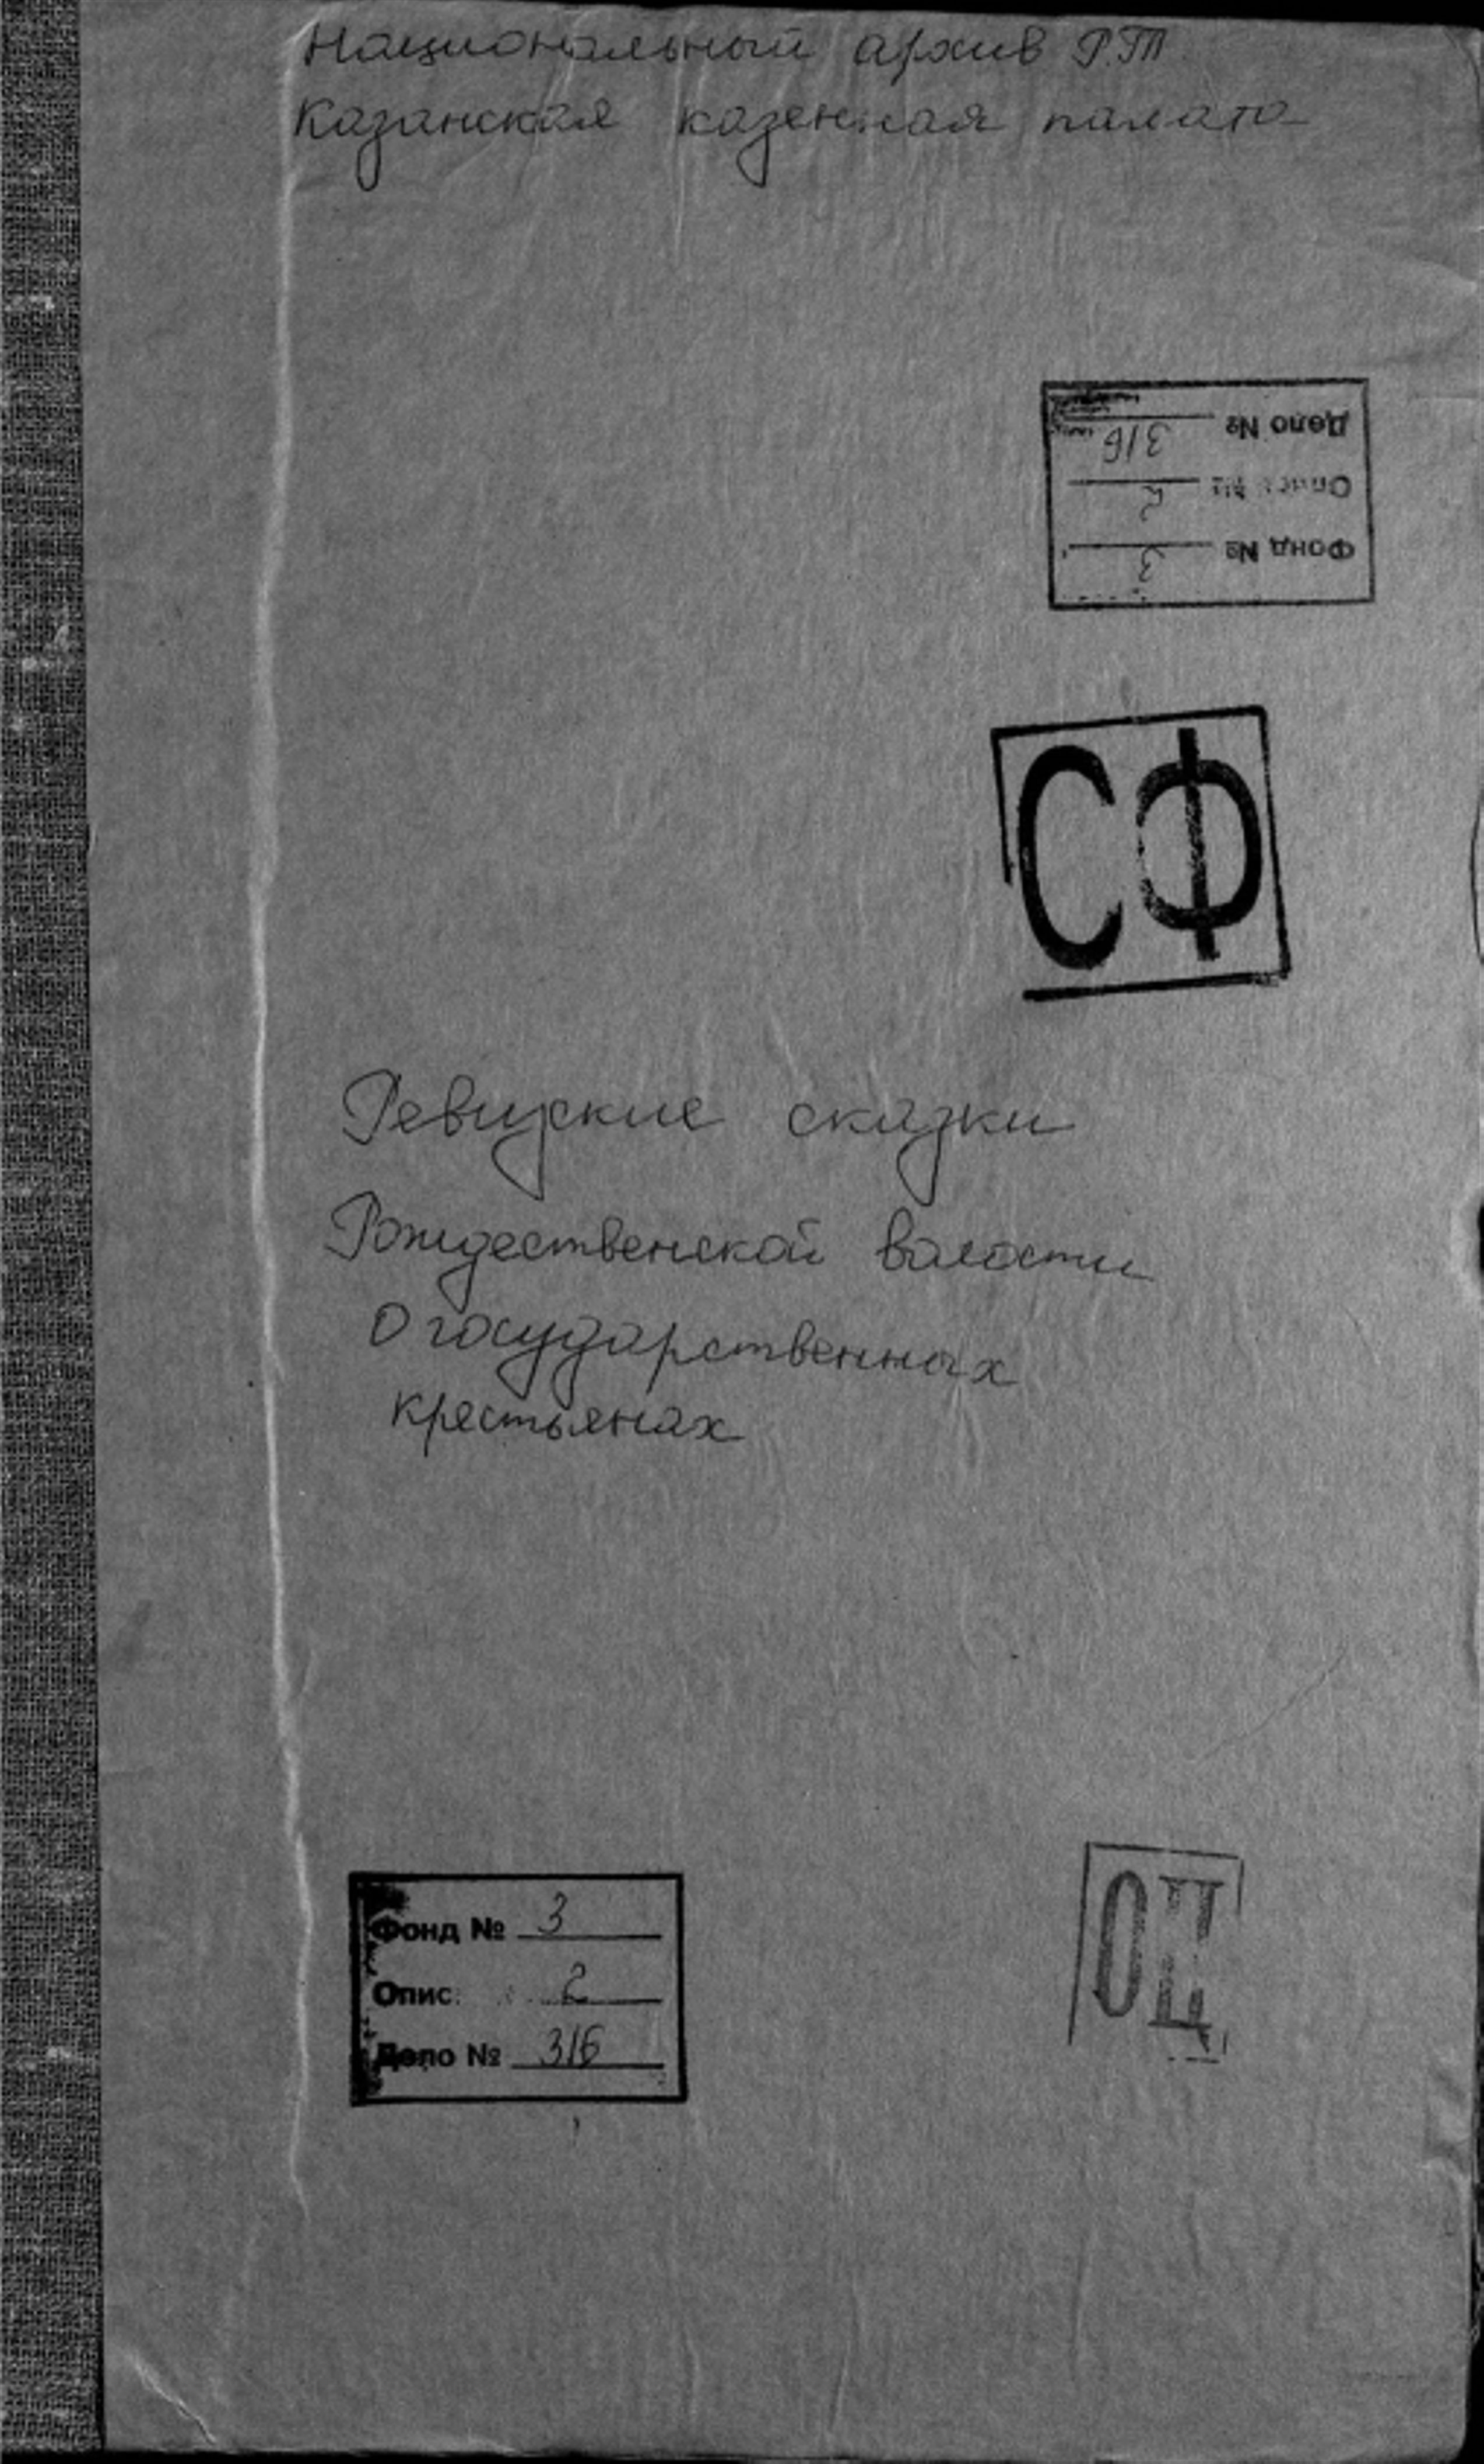 Национальный архив РТ
Казанская казенная палата
Дело № 316
Опись № 2
Фонд № 3
СФ
Ревизские сказки
Рождественской волости
о государственных
крестьянах
Фонд № 3
Опис 2
Дело № 316
ОЦ